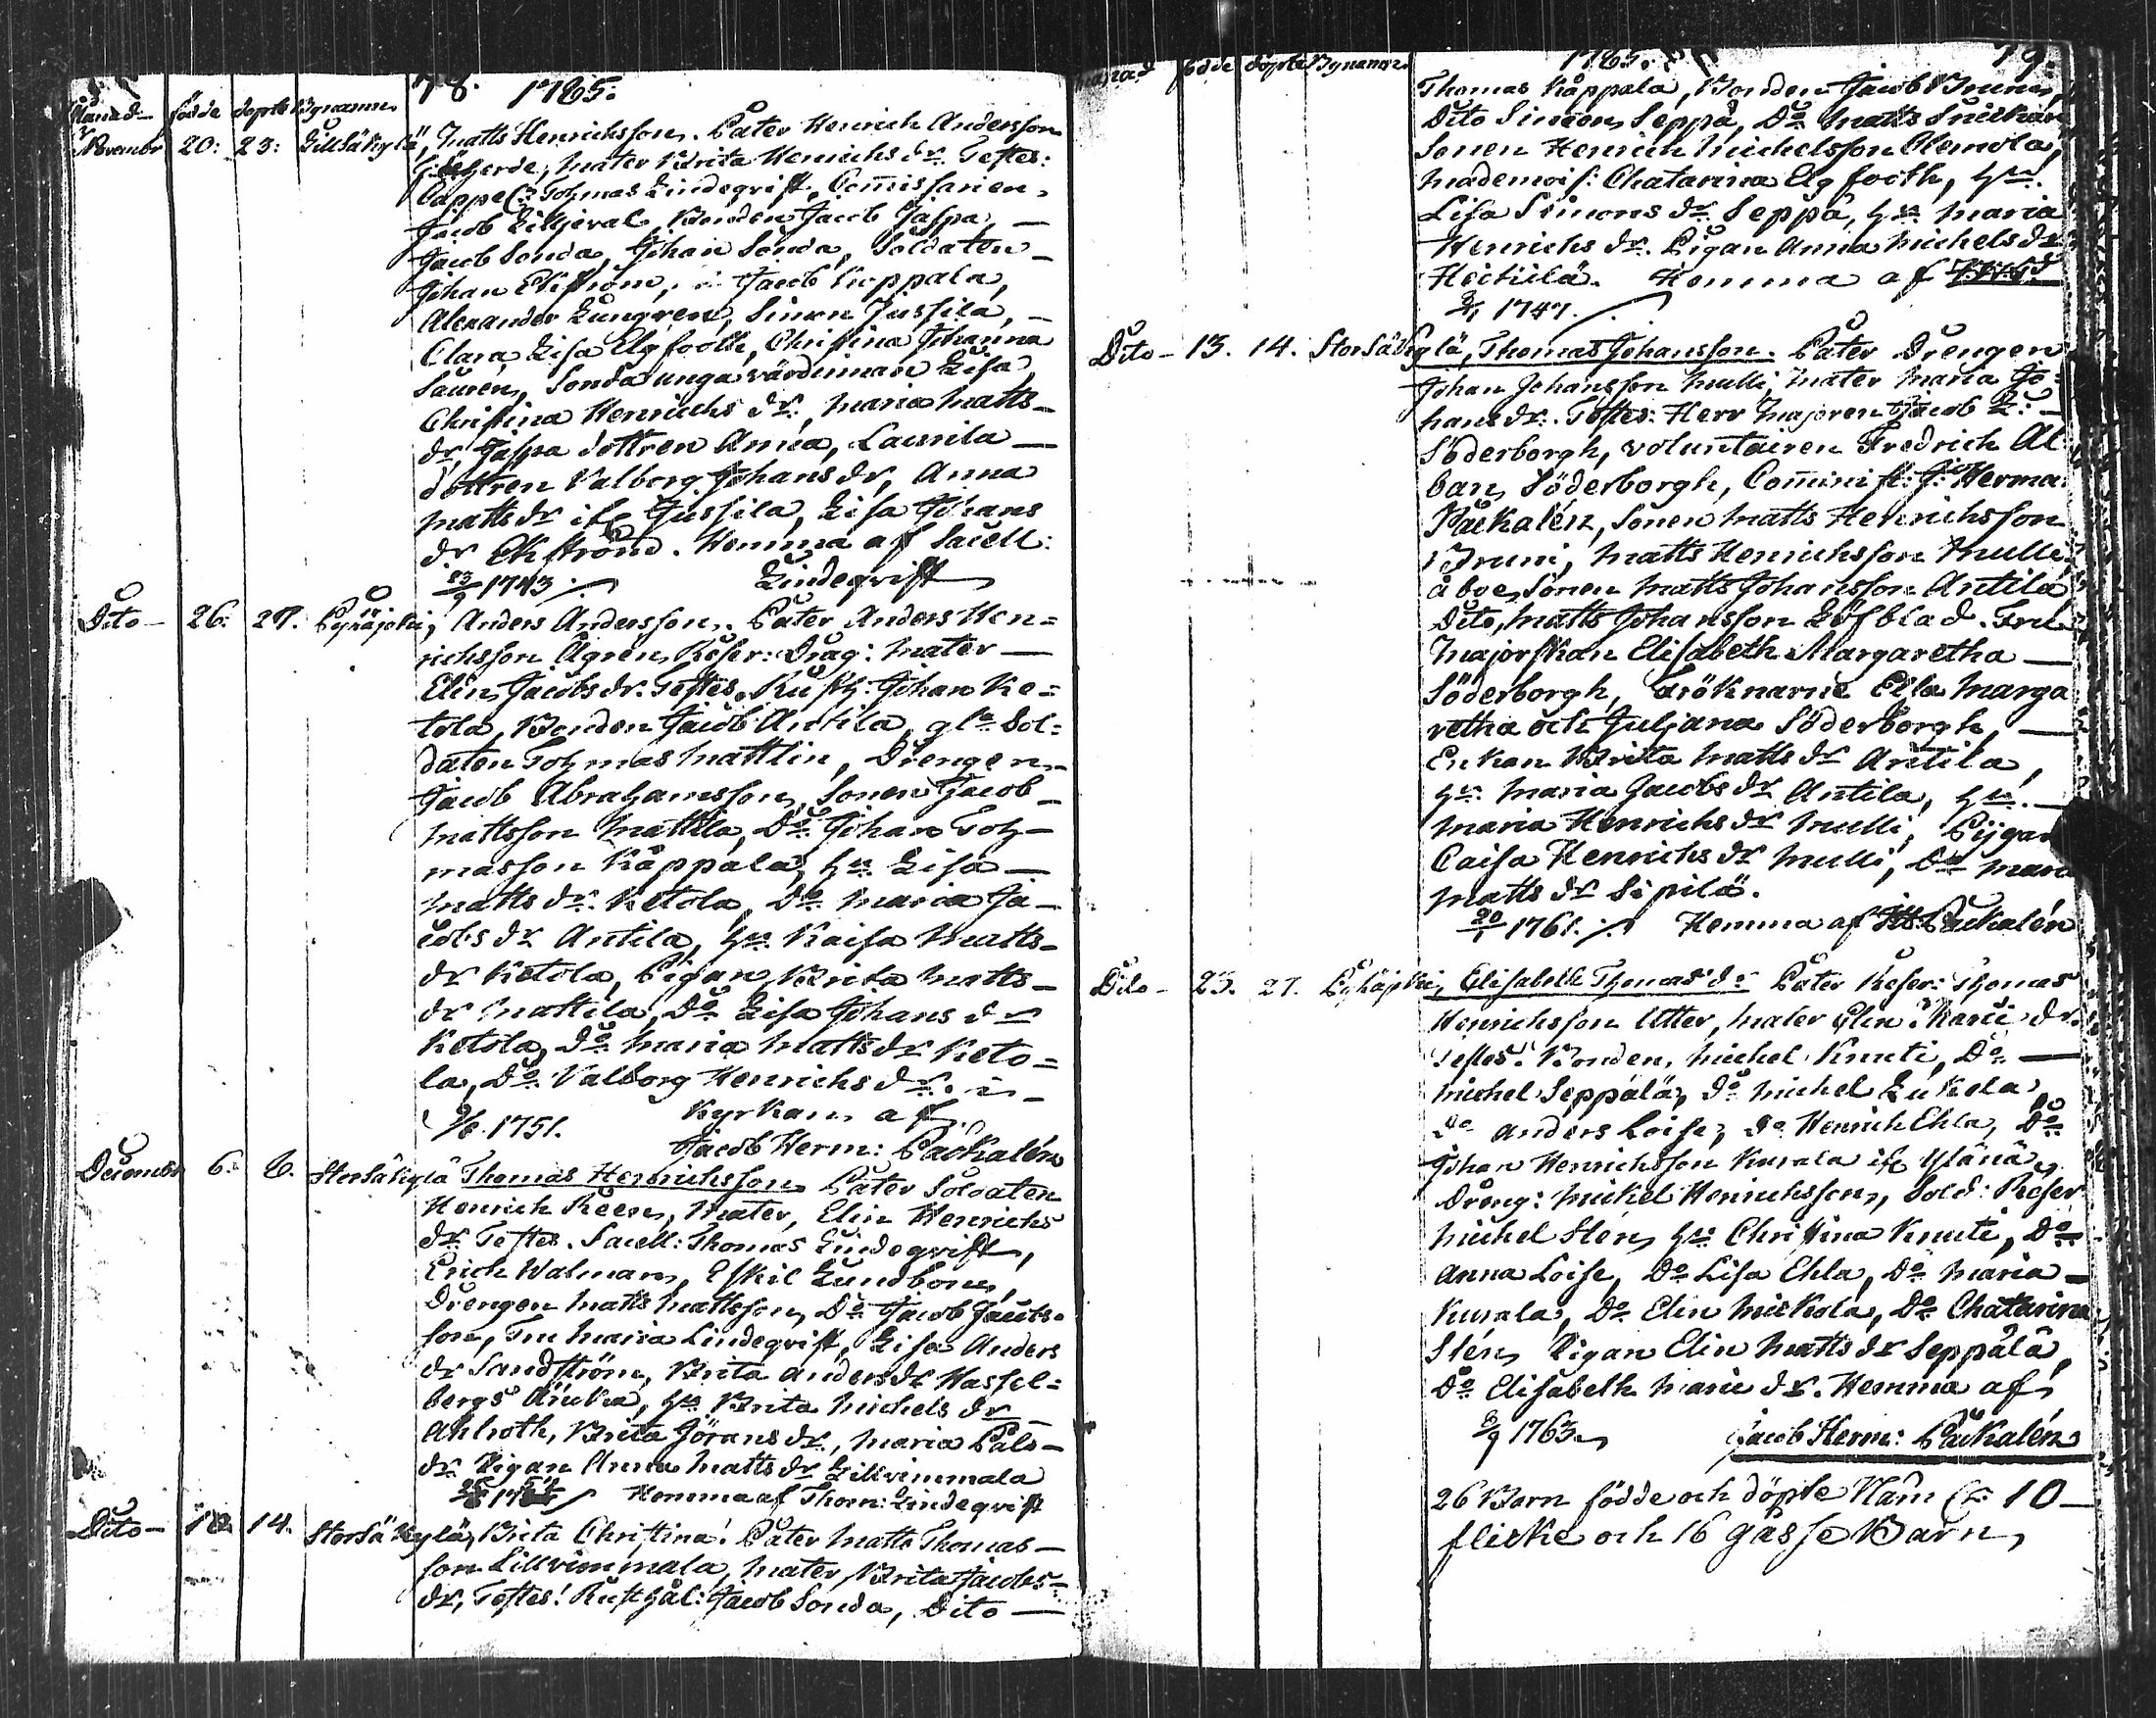 78. 1765.
Månad födde döpte Bynamn
Novembr 20: 23: Lillsäkylä, Matts Henrichsson. Pater Henrich Andersson
mater Brita Henrichs dr. Testes:
Tohmas Lindeqvist, Com̄issarien
Jacob Liljeval, Bonden Jacob Jaspa, —
Jacob Sonda, Johan Sonda, Soldaten —
Johan Ekström, Jacob Koppala,
Alexander Lungren, Simon Jussila, —
Clara Lisa Elgfooth, Christina Johanna
Sauren, Sonda unga värdinnan Lisa,
Christina Henrichs dr, Maria Matts-
dr Jaspa dottren Anna, Laurila —
dottren Valborg Johans dr, Anna
Matts dr Jussila, Lisa Johans
dr Ekström. Hemma af Sacell:
23/9 1743 ./. Lindeqvist
Dito — 26. 27. Pyhäjoki, Anders Andersson. Pater Anders Hen=
richsson Ågren, Reser: Drag: Mater —
Elin Jacobs dr. Testes. Rusth: Johan Ke=
tola, Bonden Jacob Antila, gle Sol=
daten Tohmas Mattlin, Drengen
Jacob Abrahamsson, Sonen Jacob —
Mattsson Mattila, Do Johan Toh-
masson Kåppala, hu Lisa —
Matts dr. Ketola, Do Maria Ja-
cobs dr Antila, hu Kaisa Matts-
dr Ketola, Pigan Brita Matts-
dr Mattila, Do Lisa Johans dr
Ketola, Do Maria Matts dr Keto=
la, Do Valborg Henrichs dr. i —
9/6. 1751. Kyrkan af
Jacob Herm: Packalén
Decembr 6. 6. Storsäkylä Thomas Henrichsson Pater Soldaten
Henrich Reen, Mater, Elin Henrichs
dr Testes. Sacell: Thomas Lindeqvist,
Erich Walman, Eskil Lundbom,
Drengen Matts Mattsson, Do Jacob Jacobs-
son, Fru Maria Lindeqvist, Lisa Anders
dr Sandström, Brita Anders dr Hassel=
bergs Änka, hu Brita Michels dr
Ahlroth, Brita Jörans dr, Maria Påls-
dr Pigan Anna Matts dr Lillvimmala
Hemma af Thom: Lindeqvist
Dito — 14. Storsäkylä, Brita Christina. Pater Matts Thomas-
son Lillvimmala, Mater, Brita Jacobs-
dr, Testes: Rusthål: Jacob Sonda, Dito —
1765. 79.
Månad födde döpte Bynamn
Thomas Kåppala, Bonden Jacob Bruni,
Dito Simon Seppä, Do Matts Snickar
Sonen Henrich Michelsson
Mademois: Chatarina Elgfooth, hu.
Lisa Simons dr. Seppä, hu Maria
Henrichs dr. Pigan Anna Michels dr
Heickilä. Hemma af
1747. ./.
Dito — 13. 14. Storsäkylä, Thomas Johansson. Pater Drengen
Johan Johansson Mulli, Mater Maria Jo=
hans dr. Testes: Herr Majoren Jacob L: —
Söderborgh, voluntairen Fredrich Al
ban Söderborgh, Com̄inist: J: Herma
Påckalén, Sonen Matts Henrichsson
Bruni, Matts Henrichsson Mulli
åboe, Sonen Matts Johansson Antila
Dito, Matts Johansson Löfblad. Fru
Majorskan Elisabeth Margaretha —
Söderborgh, Fröknarne Ella Marga
retha och Juliana Söderborgh, —
Enkan Brita Matts dr Antila,
hu. Maria Jacobs dr Antila, hu. —
Maria Henrichs dr Mulli, Pijgan
Caisa Henrichs dr Mulli, Do Maria
Matts dr Sipilä.
20/1 1761. ./. Hemma af Påckalén
Dito — 25. 27. Pyhäjoki, Elisabeth Thomas dr Pater Reser: Thomas
Henrichsson Utter, Mater Elin Marie dr.
Testes: Bonden, Michel Knuti, Do —
Michel Seppälä, Do Michel Lukola,
Do Anders Loise, Do Henrich Ehla, Do
Johan Henrichsson Kurala ifr Yläna
Dreng: Michel Henrichsson, Sold: Reser
Michel Sten, hu Christina Knuti, Do
Anna Loise, Do Lisa Ehla, Do Maria —
Kurala, Do Elin Mickola, Do Chatarina
Sten, Pigan Elin Matts dr Seppälä,
Do Elisabeth Marie dr. Hemma af
8/9 1763. Jacob Herm: Påckalén
26 Barn födde och döpte Näml: 10 —
flicke och 16 gåsse Barn,